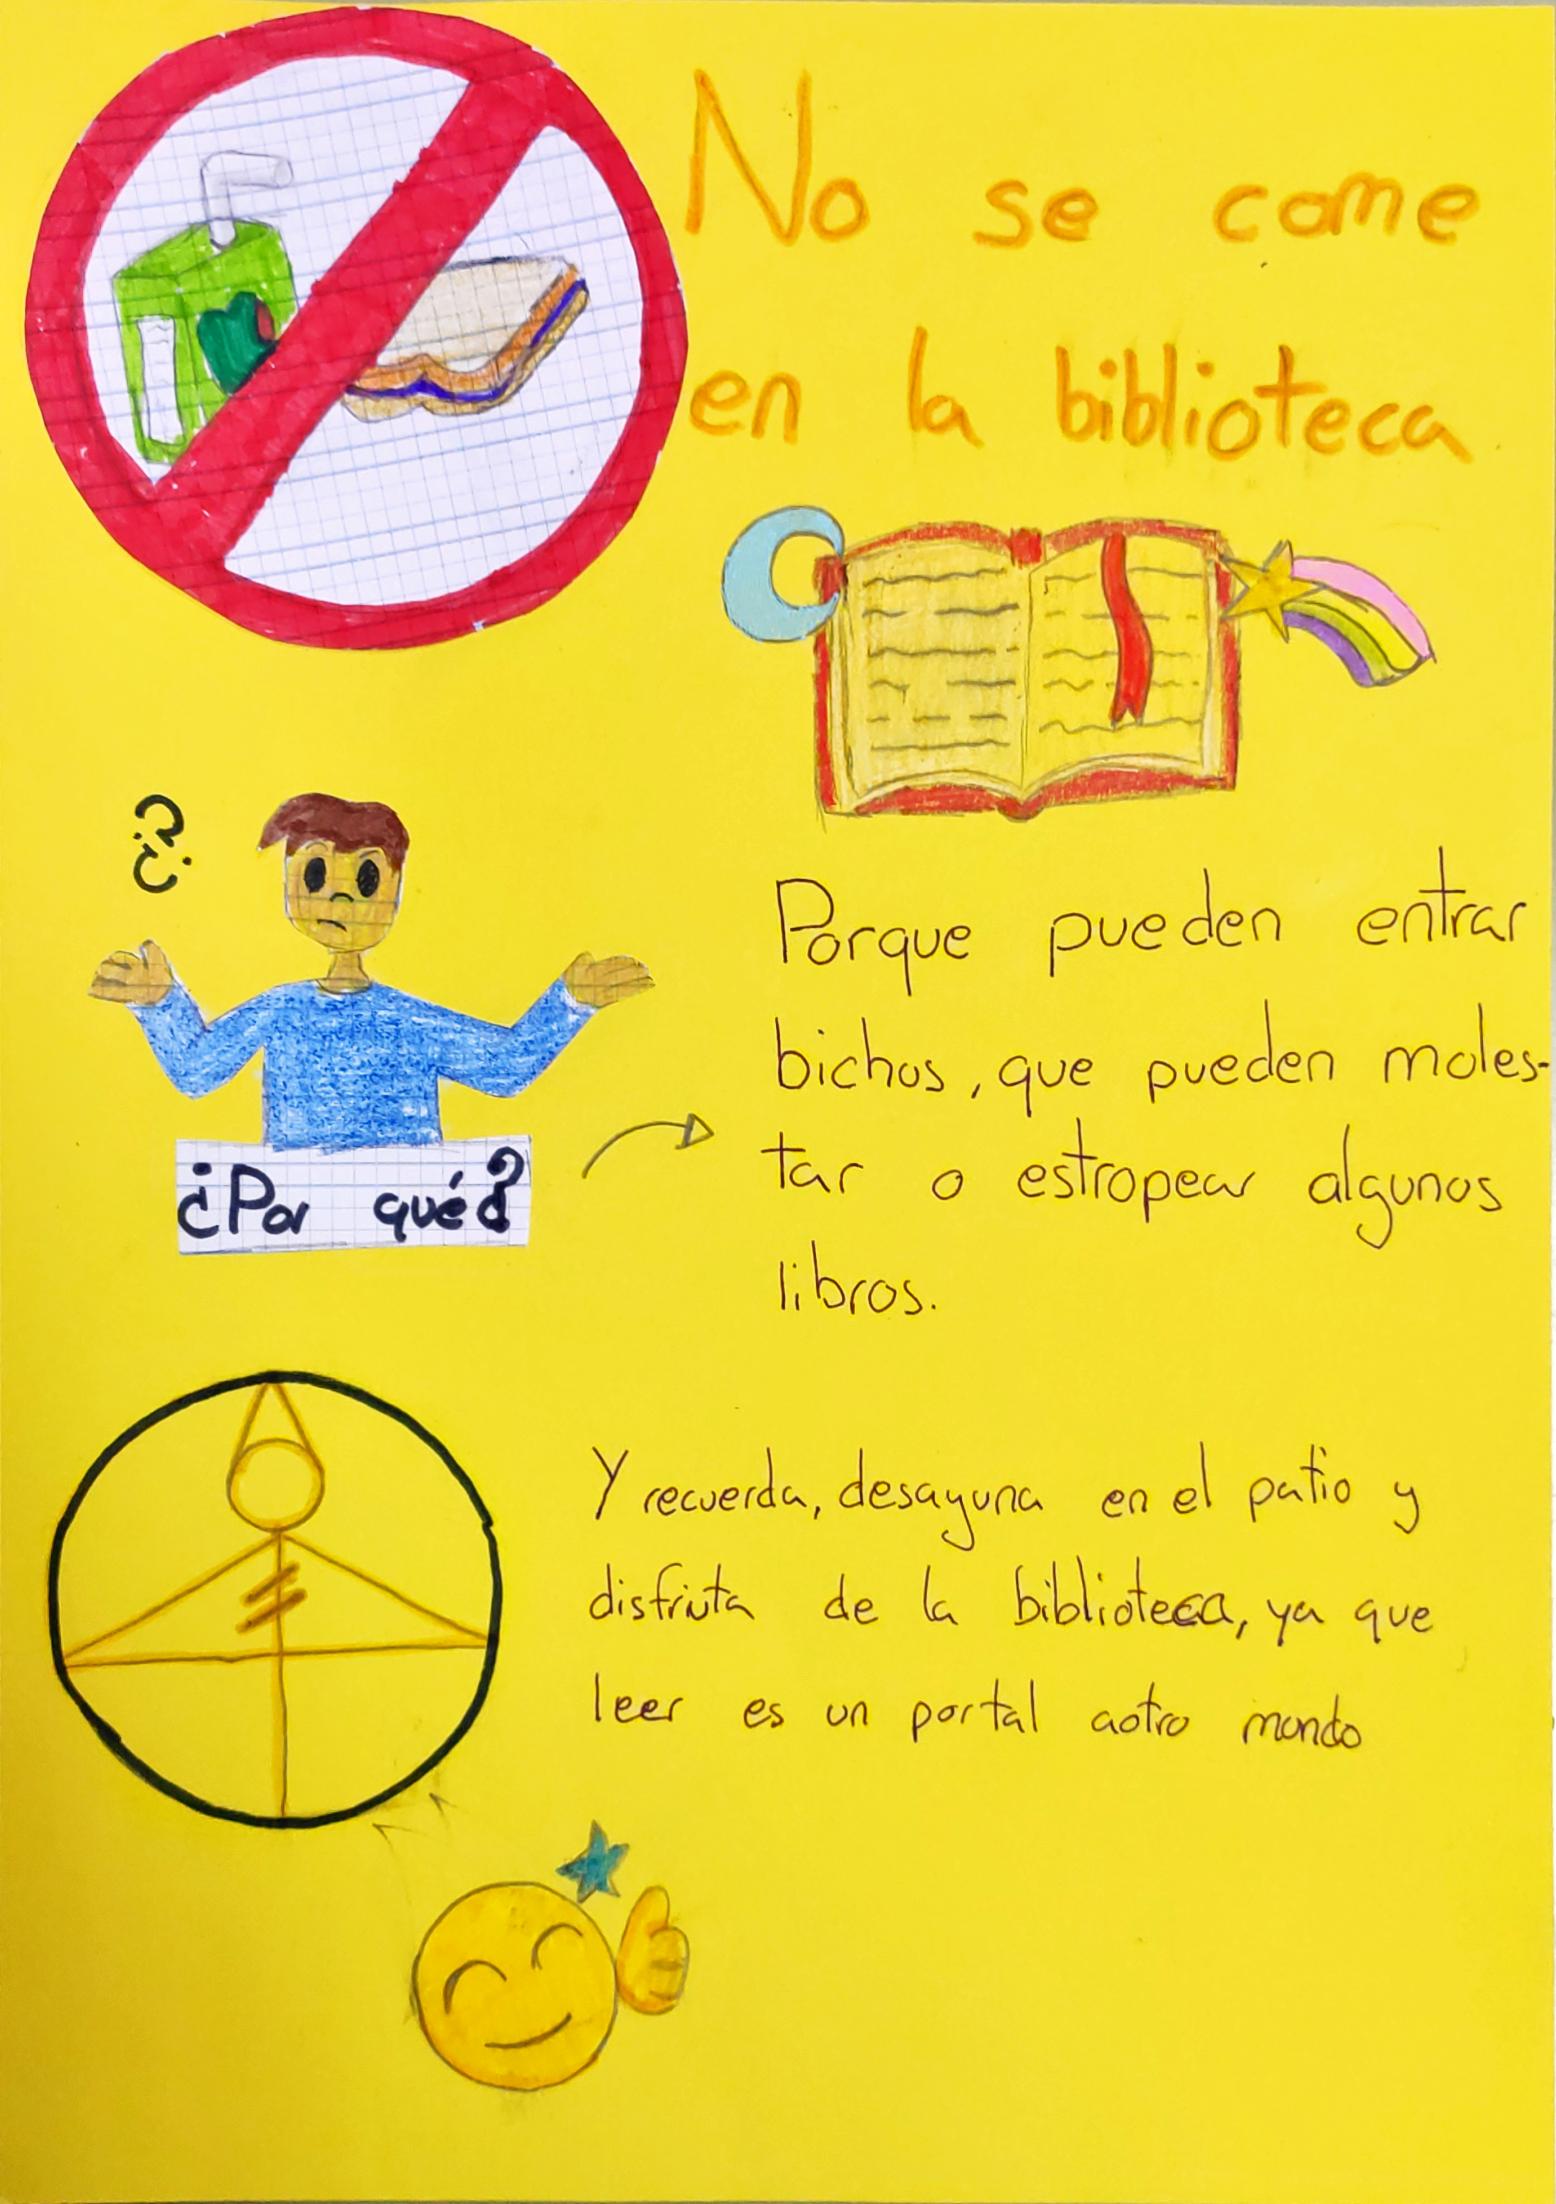 No se come
en la biblioteca
¿?
¿Por qué?
Porque pueden entrar
bichos, que pueden moles-
tar o estropear algunos
libros.
Y recuerda, desayuna en el patio y
disfruta de la biblioteca, ya que
leer es un portal aotro mundo